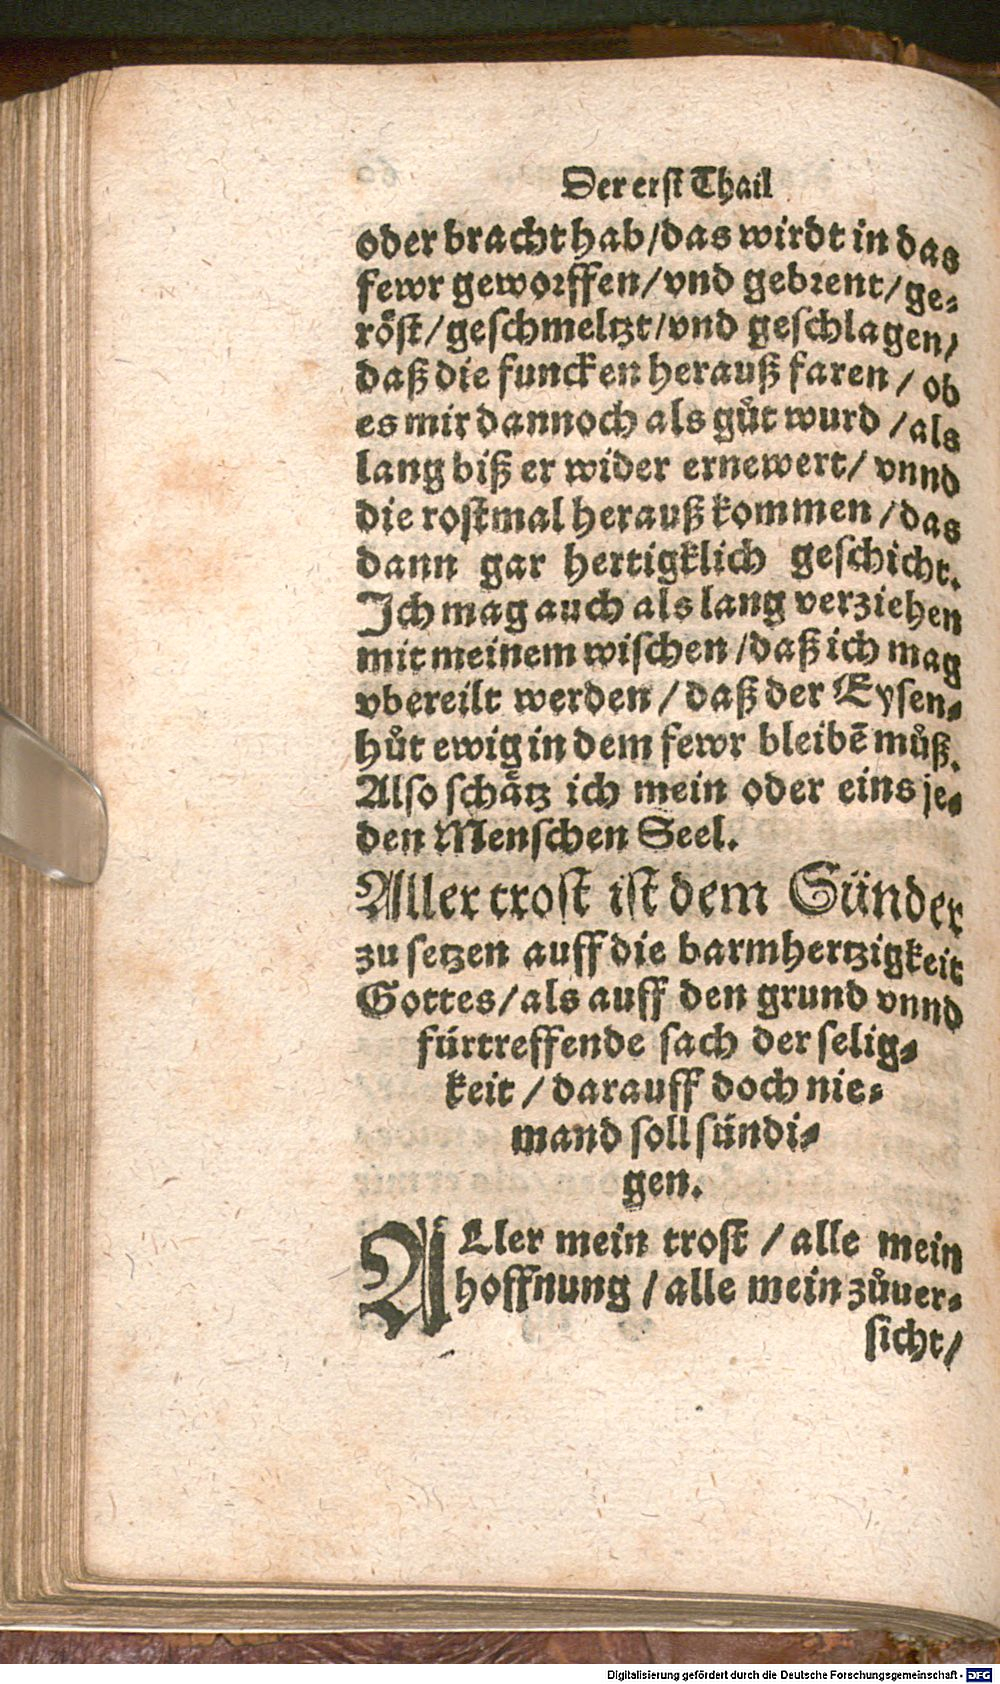 Der erst Thail
oder bracht hab/das wirdt in das
fewr geworffen/vnd gebrent/ge-
röst/geschmeltzt/vnd geschlagen/
daß die funcken herauß faren/ob
es mir dannoch als gůt wurd/als
lang biß er wider ernewert/vnnd
die rostmal herauß kommen/das
dann gar hertigklich geschicht.
Ich mag auch als lang verziehen
mit meinem wischen/daß ich mag
vbereilt werden/daß der Eysen-
hůt ewig in dem fewr bleibē můß.
Also schätz ich mein oder eins je-
den Menschen Seel.
Aller trost ist dem Sünder
zu setzen auff die barmhertzigkeit
Gottes/als auff den grund vnnd
fürtreffende sach der selig-
keit/darauff doch nie-
mand soll sündi-
gen.
ALler mein trost/alle mein
hoffnung/alle mein zůuer-
sicht/
Digitalisierung gefördert durch die Deutsche Forschungsgemeinschaft - DFG